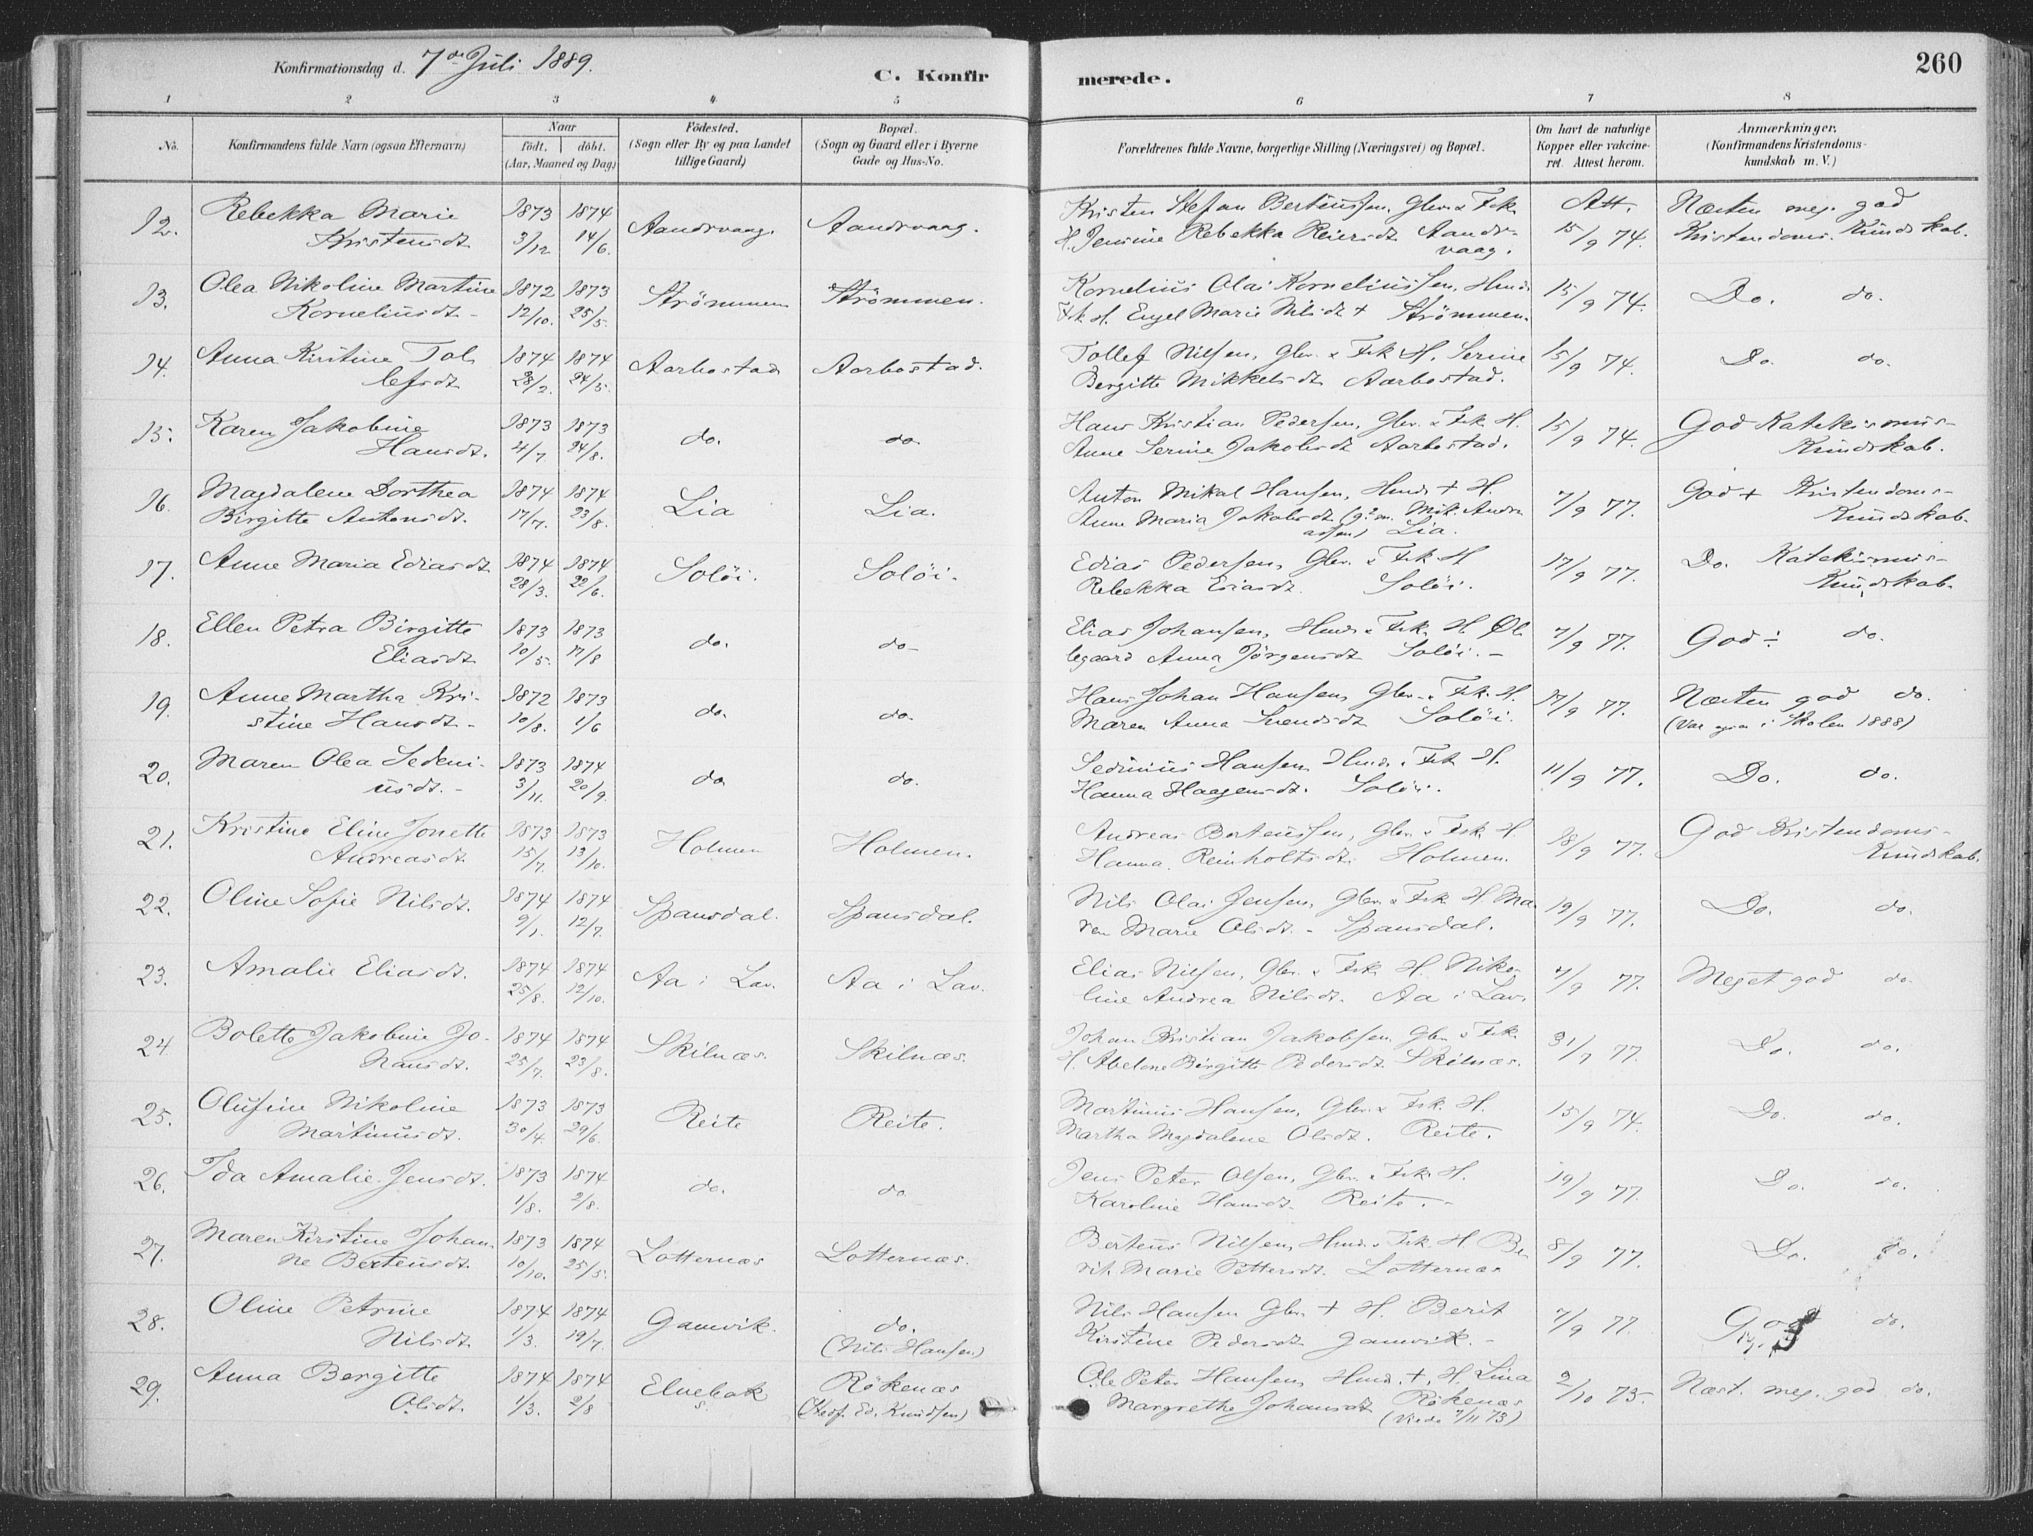 Konfirmationsdag d. 7de Juli 1889.
C. Konfir
merede.
260
1 2 3 4 5 6 7 8
No.
Konfirmandens fulde Navn (ogsaa Efternavn)
Naar
födt. döbt.
(Aar, Maaned og Dag)
Födested.
(Sogn eller By og paa Landet
tillige Gaard)
Bopæl.
(Sogn og Gaard eller i Byerne
Gade og Hus-No.
Forældrenes fulde Navne, borgerlige Stilling (Næringsvei) og Bopæl.
Om havt de naturlige
Kopper eller vakcine-
ret. Attest herom.
Anmærkninger.
(Konfirmandens Kristendoms-
kundskab m. V.)
Rebekka Marie 1873 1874 Kristen Stefan Berteussen, Gbr. & Fsk. Att. Næsten meg. god
12. Kristensdt. 3/12 14/6. Aandsvaag. Aandsvaag. H. Jensine Rebekka Reiersdt Aands- 15/9 74. Kristendoms-Kundskab.
vaag.
Olea Nikoline Martine 1872 1873 Kornelius Olai Korneliussen, Hmd.
13. Korneliusdt. 12/10. 25/5. Strömmen Strömmen. Fsk. H. Engel Marie Nilsdt + Strömmen. 15/9 74. Do. do.
Anna Kristine Tol- 1874 1874 Tollef Nilsen, Gbr. & Fsk H. Serine
14. lefsdt 28/2. 24/5. Aarbostad Aarbostad. Bergitte Mikkelsdt. Aarbostad. 15/9 74. Do. do.
Karen Jakobine 1873 1873 Hans Kristian Pedersen, Gbr. & Fsk. H. God Katekismus-
15. Hansdt. 4/7 24/8. do. do. Anne Serine Jakobsdt Aarbostad. 15/9 74. Kundskab.
Magdalene Dorthea 1874 1874 Anton Mikal Hansen, Hmd. + H. God + Kristendoms-
16. Birgitte Antonsdt. 17/7. 23/8. Lia Lia. Anne Maria Jakobsdt (g. m. Mik. Andre- 7/9 77. Kundskab.
assen) Lia.
Anne Maria Ediasdt 1874 1874 Edias Pedersen, Gbr. & Fsk H Do. Katekismus-
17. 28/3. 22/6. Solöi. Solöi. Rebekka Esiasdt. Solöi. 17/9 77. Kundskab.
Ellen Petra Birgitte 1873 1873 Elias Johansen, Hmd. & Fsk. H. Øl-
18. Eliasdt 10/5. 17/8 do. do. legaard Anna Jörgensdt Solöi. 7/9 77. God ÷ do.
Anne Martha Kri- 1872 1873 Hans Johan Hansen, Gbr. & Fsk. H. Næsten god do.
19. stine Hansdt. 10/8. 1/6 do. do. Maren Anna Svendsdt Solöi. 17/9 77. (Var i Skolen 1888)
Maren Olea Sedeni- 1873 1874 Sedinius Hansen Hmd. & Fsk H.
20. usdt. 3/11. 20/9. do do. Hanna Haagensdt. Solöi. 11/9 77. Do. do.
Kristine Eline Jonette 1873 1873 Andreas Berteussen, Gbr. & Fsk. H. God Kristendoms-
21. Andreasdt. 15/7 13/10. Holmen Holmen. Hanna Reinholtsdt. Holmen. 18/9 77. Kundskab.
Oline Sofie Nilsdt. 1874 1874 Nils Olai Jensen, Gbr. & Fsk. H Ma-
22. 9/1. 12/7. Spansdal. Spansdal. ren Marie Olsdt. Spansdal. 19/9 77. Do. do.
Amalie Eliasdt. 1874 1874 Elias Nilsen, Gbr. & Fsk. H. Niko-
23. 25/8. 12/10. Aa i Lav. Aa i Lav. line Andrea Nilsdt. Aa i Lav. 7/9 77. Meget god do
Bolette Jakobine Jo- 1874 1874 Johan Kristian Jakobsen Gbr & Fsk
24 hansdt. 25/7. 23/8. Skilnæs. Skilnæs. H. Abelone Birgitte Pedersdt. Skilnæs. 31/7 77. Do. do.
Olufine Nikoline 1873 1873 Martinus Hansen, Gbr. & Fsk. H.
25. Martinusdt. 30/4. 29/6. Reite Reite. Martha Magdalene Olsdt. Reite. 15/9 74. Do. do.
Ida Amalie Jensdt. 1873 1874 Jens Peter Olsen, Gbr. & Fsk. H.
26. 1/8. 2/8. do. do. Karoline Hansdt. Reite. 19/9 77. Do. do.
Maren Kirstine Johan- 1873 1874 Berteus Nilsen, Hmd. & Fsk. H Be-
27. ne Berteusdt. 10/10. 25/5. Lotternæs Lotternæs. rit Marie Pettersdt. Lotternæs 8/9 77. Do. do.
Oline Petrine 1874 1874 Nils Hansen Gbr. + H. Berit
28. Nilsdt 1/3. 19/7. Gamvik. do. Kirstine Pedersdt Gamvik. 7/9 77. God do.
(Nils Hansen)
Anna Bergitte 1874 1874 Rökenæs Ole Peter Hansen, Hmd. +, H. Lina
29. Olsdt. 1/3. 2/8 Elvebak (Stedf. Ed. Knudsen) Margrethe Johansdt Rökenæs 2/10 75. Næst. meg. god do.
(Viede 7/11 73)